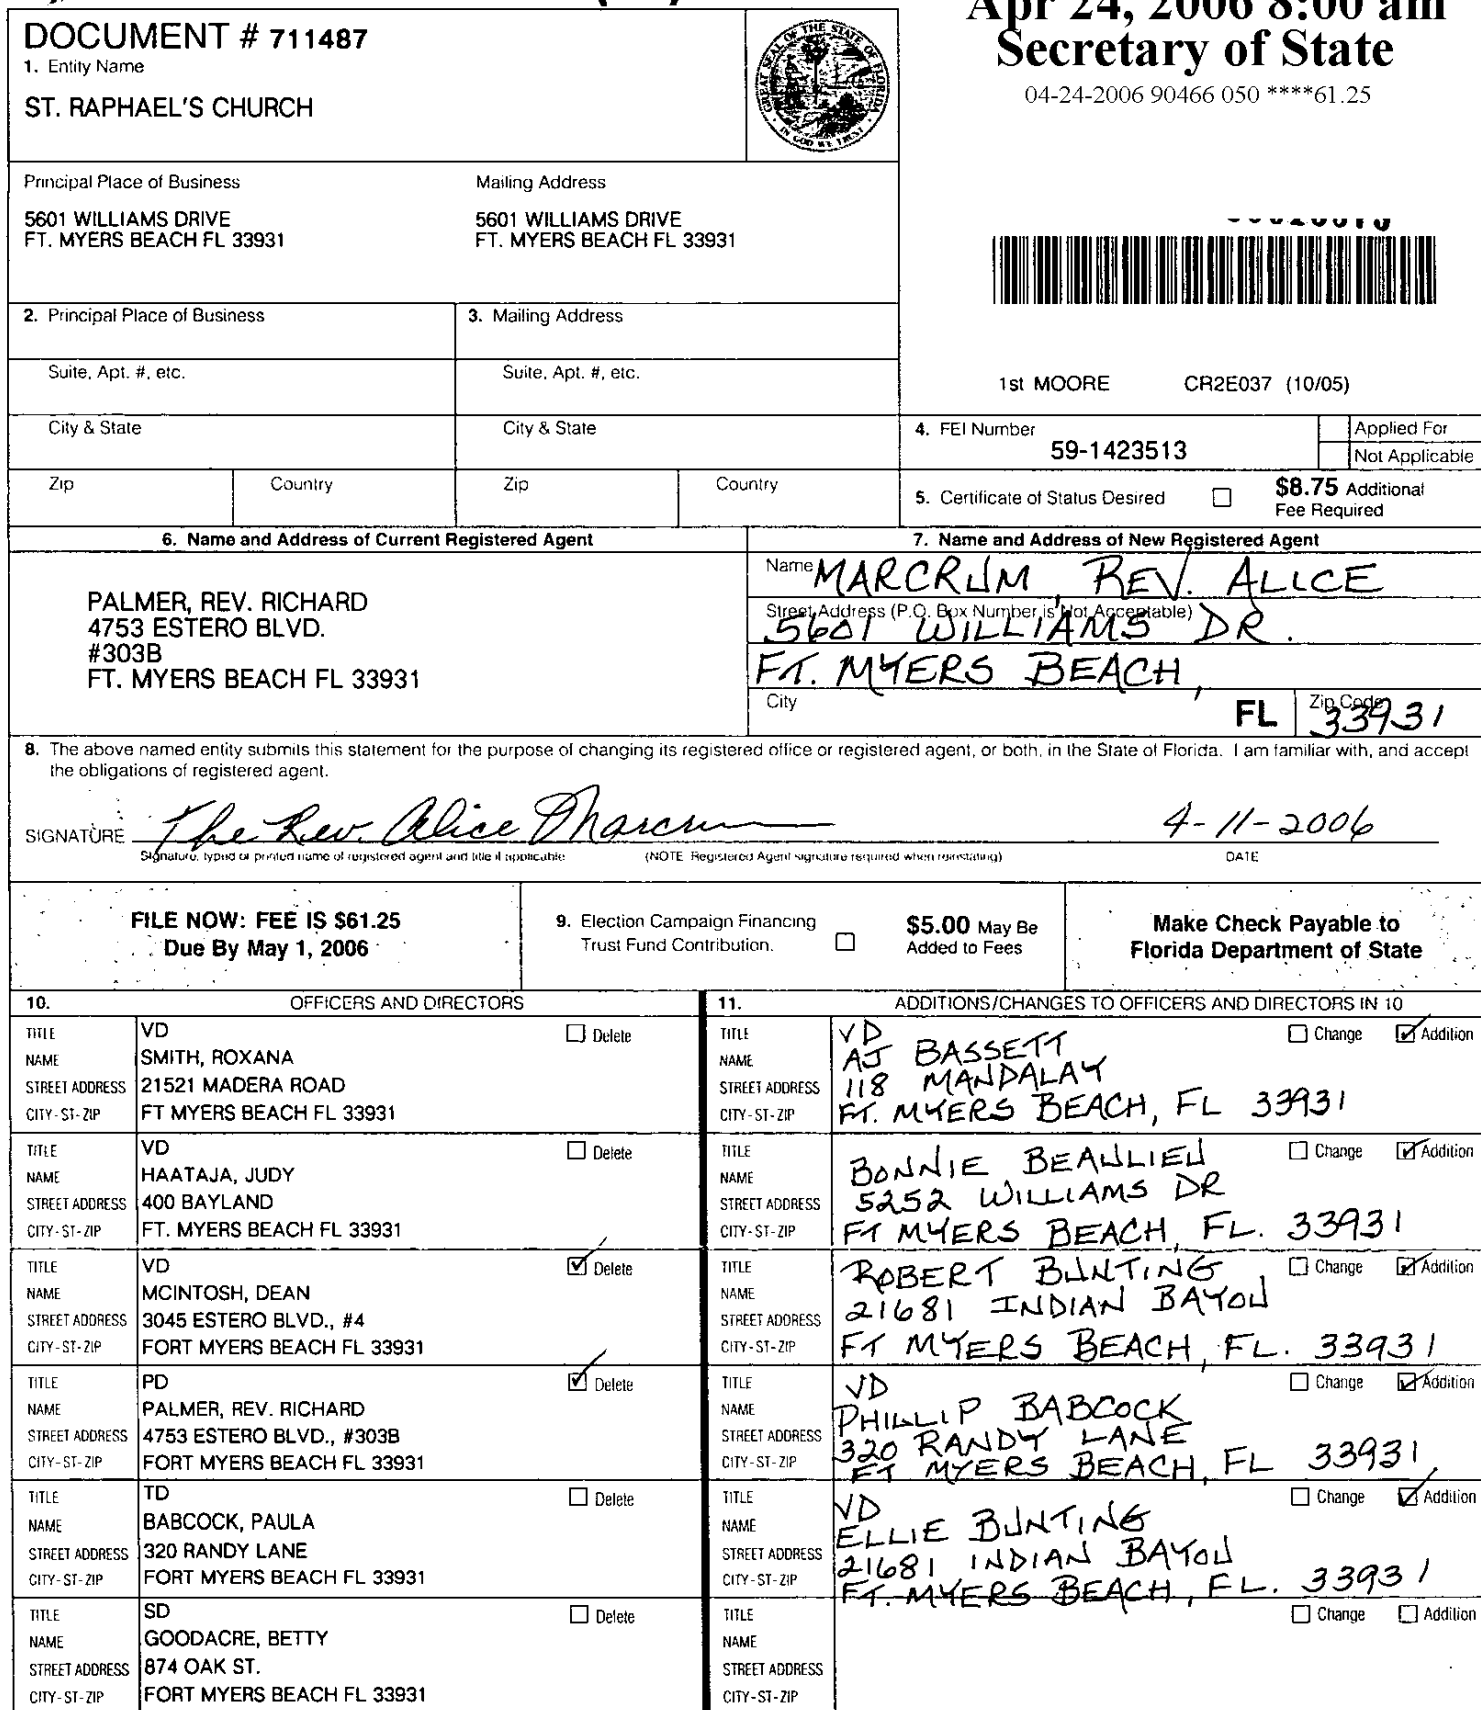 Apr 24, 2006 8:00 am
Secretary of State
04-24-2006 90466 050 ****61.25
DOCUMENT # 711487
1. Entity Name
ST. RAPHAEL'S CHURCH
GREAT SEAL OF THE STATE OF FLORIDA
IN GOD WE TRUST
Principal Place of Business
5601 WILLIAMS DRIVE
FT. MYERS BEACH FL 33931
Mailing Address
5601 WILLIAMS DRIVE
FT. MYERS BEACH FL 33931
2. Principal Place of Business
3. Mailing Address
Suite, Apt. #, etc.
Suite, Apt. #, etc.
1st MOORE CR2E037 (10/05)
City & State
City & State
4. FEI Number
59-1423513
Applied For
Not Applicable
Zip
Country
Zip
Country
5. Certificate of Status Desired
$8.75 Additional
Fee Required
6. Name and Address of Current Registered Agent
PALMER, REV. RICHARD
4753 ESTERO BLVD.
#303B
FT. MYERS BEACH FL 33931
7. Name and Address of New Registered Agent
Name MARCRUM, REV. ALICE
Street Address (P.O. Box Number is Not Acceptable)
5601 WILLIAMS DR.
FT. MYERS BEACH,
City
FL
Zip Code
33931
8. The above named entity submits this statement for the purpose of changing its registered office or registered agent, or both, in the State of Florida. I am familiar with, and accept
the obligations of registered agent.
SIGNATURE The Rev. Alice Marcrum 4-11-2006
Signature, typed or printed name of registered agent and title if applicable (NOTE Registered Agent signature required when reinstating) DATE
FILE NOW: FEE IS $61.25
Due By May 1, 2006
9. Election Campaign Financing
Trust Fund Contribution.
$5.00 May Be
Added to Fees
Make Check Payable to
Florida Department of State
10. OFFICERS AND DIRECTORS
TITLE VD Delete
NAME SMITH, ROXANA
STREET ADDRESS 21521 MADERA ROAD
CITY-ST-ZIP FT MYERS BEACH FL 33931
TITLE VD Delete
NAME HAATAJA, JUDY
STREET ADDRESS 400 BAYLAND
CITY-ST-ZIP FT. MYERS BEACH FL 33931
TITLE VD Delete
NAME MCINTOSH, DEAN
STREET ADDRESS 3045 ESTERO BLVD., #4
CITY-ST-ZIP FORT MYERS BEACH FL 33931
TITLE PD Delete
NAME PALMER, REV. RICHARD
STREET ADDRESS 4753 ESTERO BLVD., #303B
CITY-ST-ZIP FORT MYERS BEACH FL 33931
TITLE TD Delete
NAME BABCOCK, PAULA
STREET ADDRESS 320 RANDY LANE
CITY-ST-ZIP FORT MYERS BEACH FL 33931
TITLE SD Delete
NAME GOODACRE, BETTY
STREET ADDRESS 874 OAK ST.
CITY-ST-ZIP FORT MYERS BEACH FL 33931
11. ADDITIONS/CHANGES TO OFFICERS AND DIRECTORS IN 10
TITLE VD Change Addition
NAME AJ BASSETT
STREET ADDRESS 118 MANDALAY
CITY-ST-ZIP FT. MYERS BEACH, FL 33931
TITLE Change Addition
NAME BONNIE BEAULIEU
STREET ADDRESS 5252 WILLIAMS DR
CITY-ST-ZIP FT MYERS BEACH, FL. 33931
TITLE Change Addition
NAME ROBERT BUNTING
STREET ADDRESS 21681 INDIAN BAYOU
CITY-ST-ZIP FT MYERS BEACH, FL. 33931
TITLE VD Change Addition
NAME PHILLIP BABCOCK
STREET ADDRESS 320 RANDY LANE
CITY-ST-ZIP FT MYERS BEACH, FL 33931
TITLE VD Change Addition
NAME ELLIE BUNTING
STREET ADDRESS 21681 INDIAN BAYOU
CITY-ST-ZIP FT. MYERS BEACH, FL. 33931
TITLE Change Addition
NAME
STREET ADDRESS
CITY-ST-ZIP